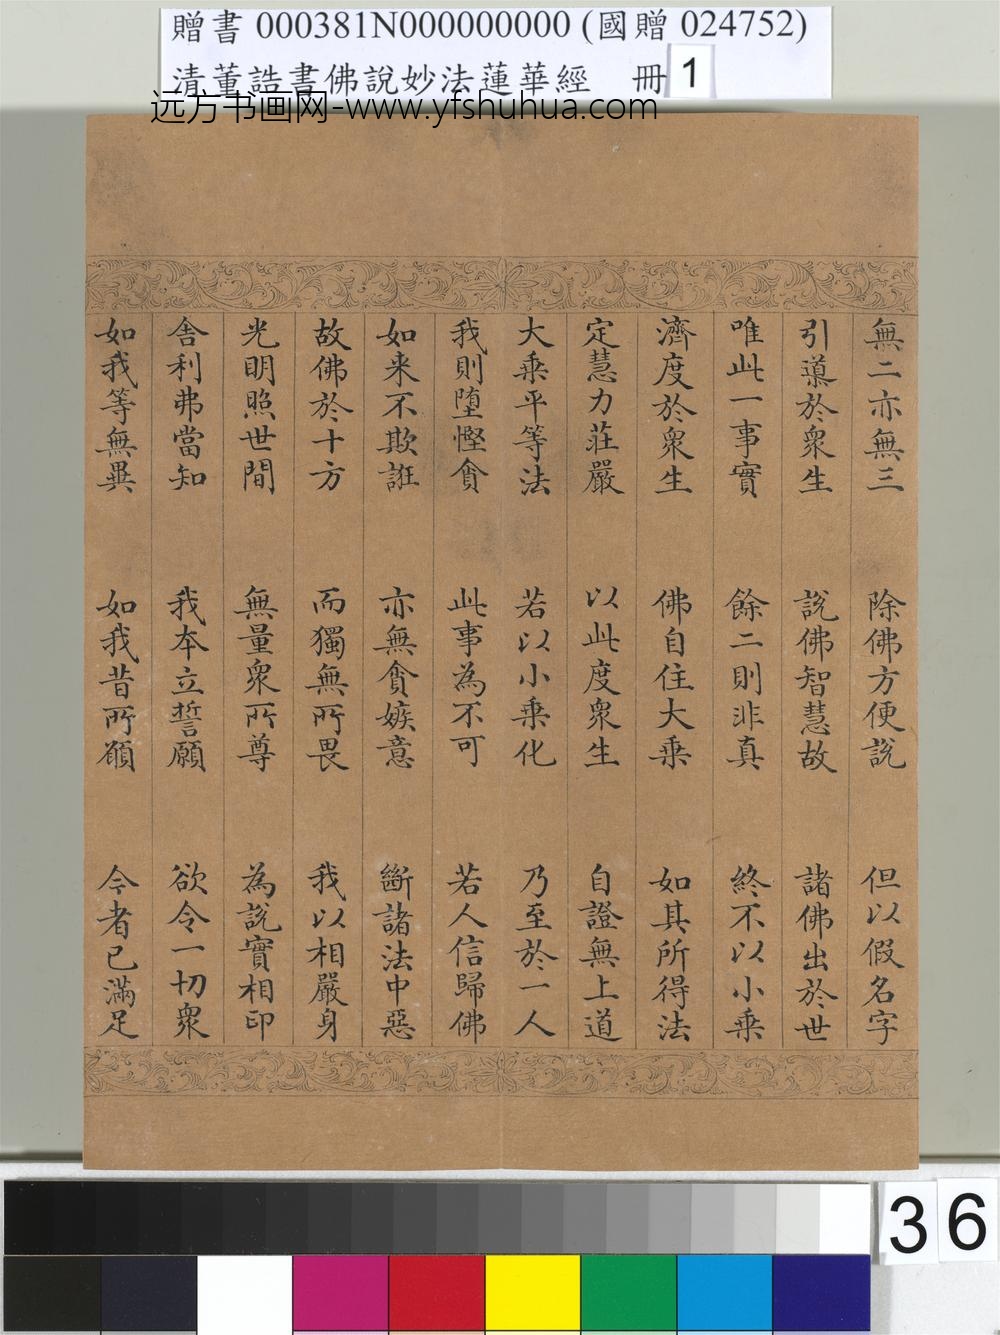 贈書 000381N000000000 (國贈 024752)
清董誥書佛說妙法蓮華經 冊 1
远方书画网-www.yfshuhua.com
無二亦無三 除佛方便說 但以假名字
引導於衆生 說佛智慧故 諸佛出於世
唯此一事實 餘二則非真 終不以小乗
濟度於衆生 佛自住大乗 如其所得法
定慧力莊嚴 以此度衆生 自證無上道
大乗平等法 若以小乗化 乃至於一人
我則墮慳貪 此事為不可 若人信歸佛
如来不欺誑 亦無貪嫉意 斷諸法中惡
故佛於十方 而獨無所畏 我以相嚴身
光明照世間 無量衆所尊 為說實相印
舍利弗當知 我本立誓願 欲令一切衆
如我等無異 如我昔所願 今者已滿足
36